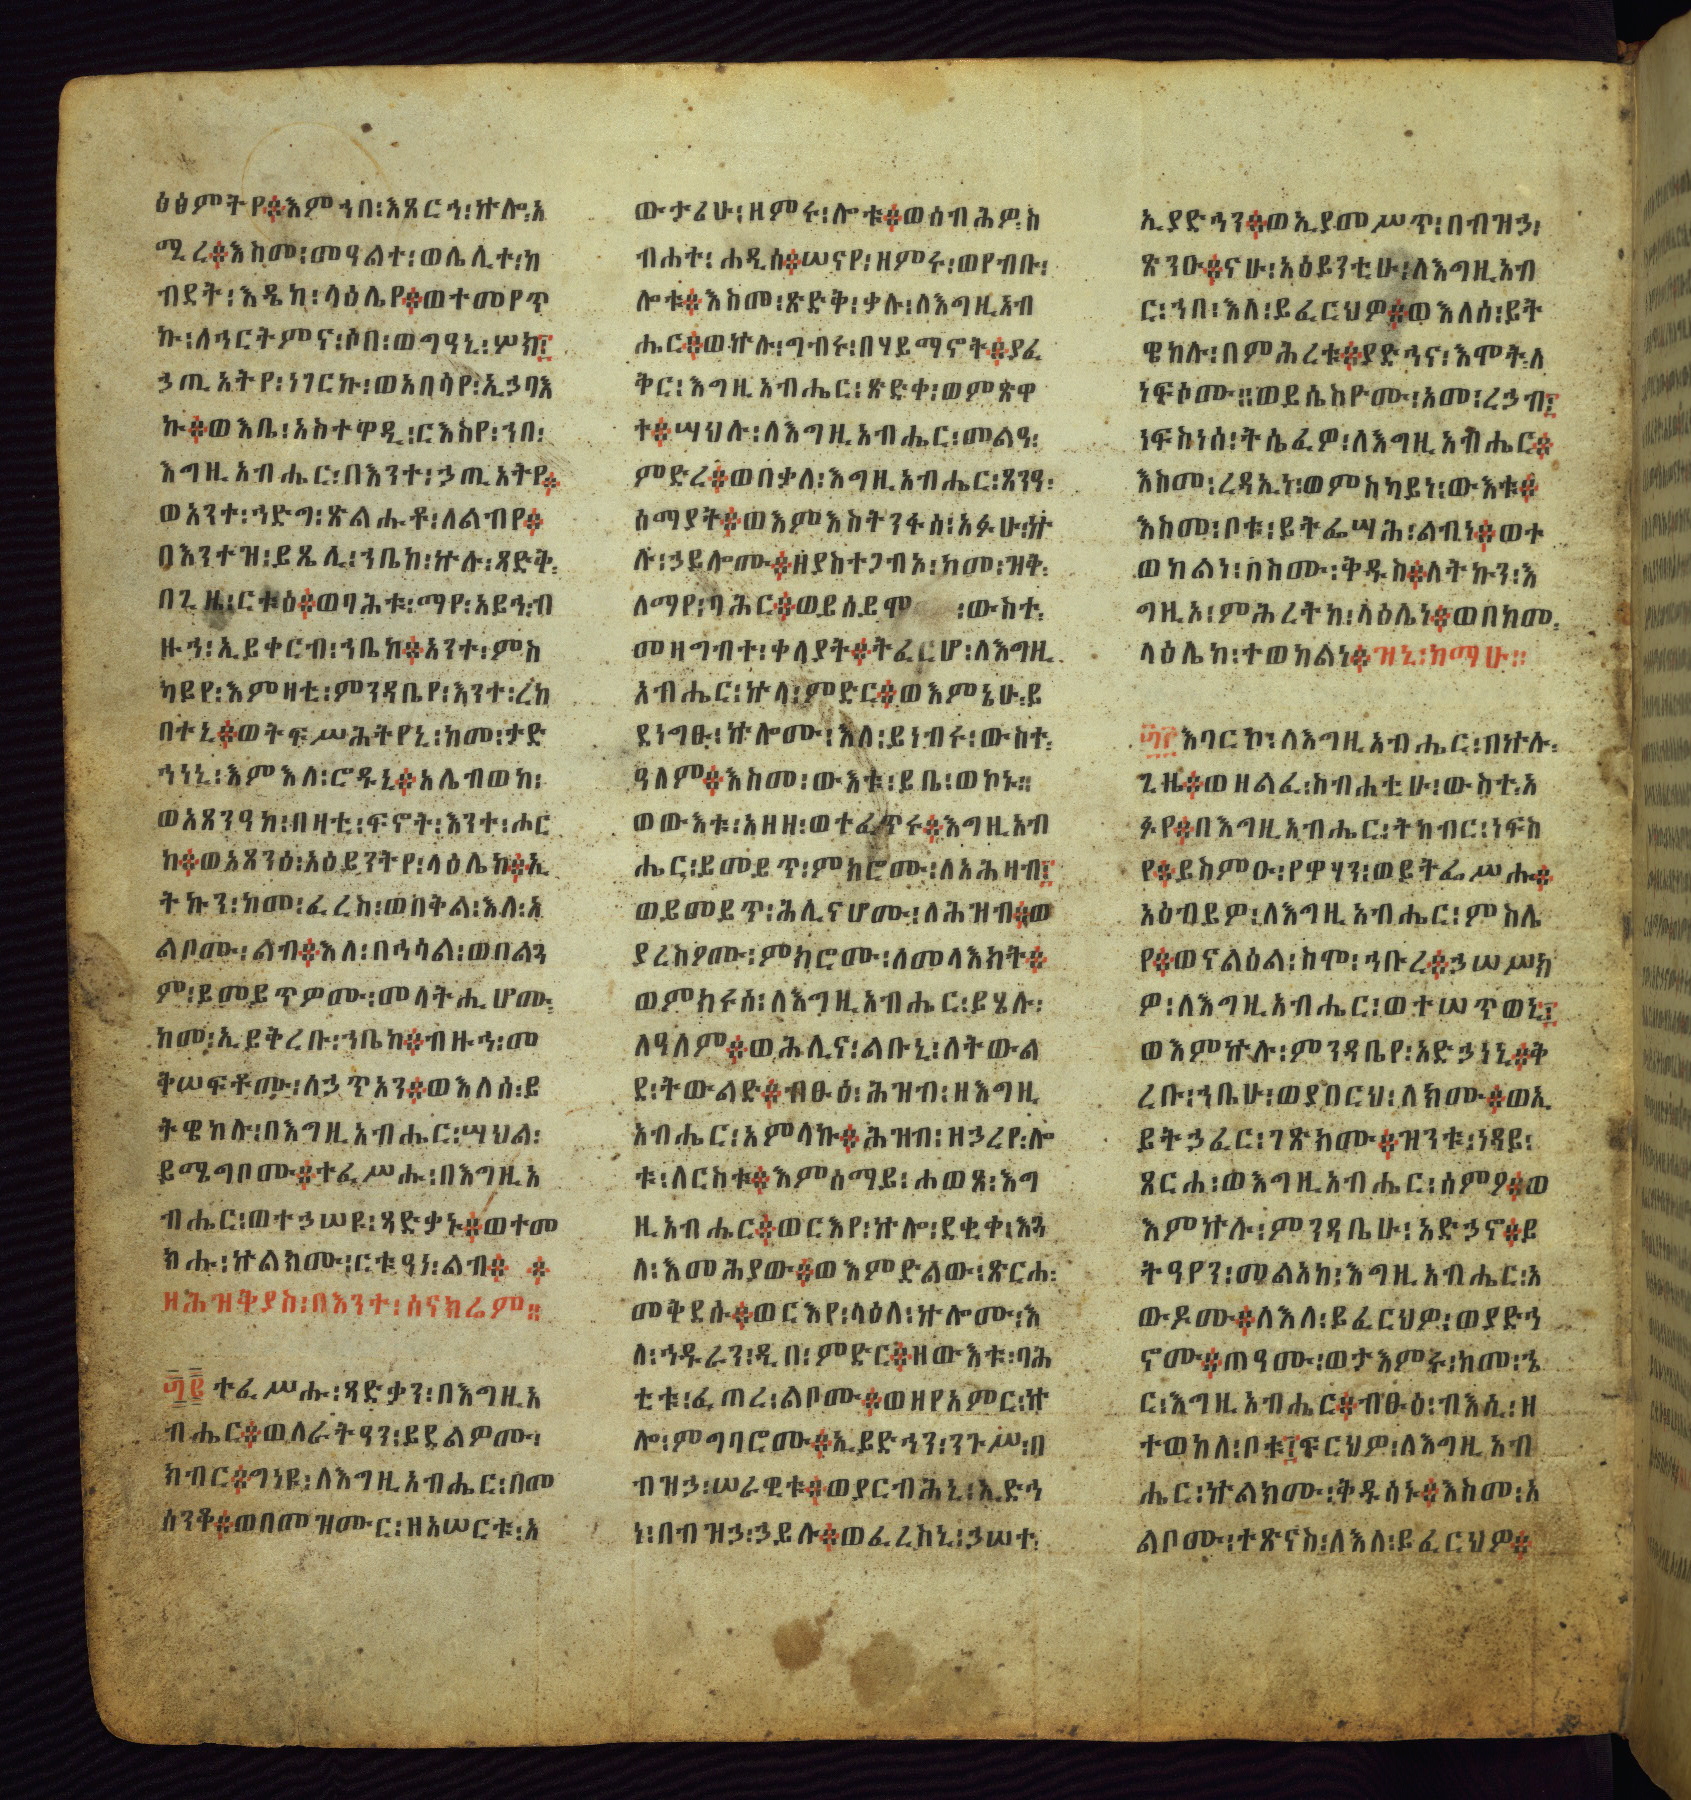 ዕፅምትየ፨እምኀበ፡እጸርኅ፡ኵሎ፡አ
ሚረ፨እስመ፡መዓልተ፡ወሌሊተ፡ከ
ብደት፡እዴከ፡ላዕሌየ፨ወተመየጥ
ኩ፡ለኀርትምና፡ሶበ፡ወግዓኒ፡ሦክ፤
ኃጢአትየ፡ነገርኩ፡ወአበሳየ፡ኢኃባእ
ኩ፨ወእቤ፡አስተዋዲ፡ርእስየ፡ኀበ፡
እግዚአብሔር፡በእንተ፡ኃጢአትየ፨
ወአንተ፡ኀድግ፡ጽልሑቶ፡ለልብየ፨
በእንተዝ፡ይጼሊ፡ኀቤከ፡ኵሉ፡ጻድቅ፡
በጊዜ፡ርቱዕ፨ወባሕቱ፡ማየ፡አይኅ፡ብ
ዙኅ፡ኢይቀርብ፡ኀቤከ፨አንተ፡ምስ
ካይየ፡እምዛቲ፡ምንዳቤየ፡እንተ፡ረከ
በተኒ፨ወትፍሥሕትየኒ፡ከመ፡ታድ
ኅነኒ፡እምእለ፡ሮዱኒ፨አሌብወከ፡
ወአጸንዓከ፡በዛቲ፡ፍኖት፡እንተ፡ሖር
ከ፨ወአጸንዕ፡አዕይንትየ፡ላዕሌከ፨ኢ
ትኩን፡ከመ፡ፈረስ፡ወበቅል፡እለ፡አ
ልቦሙ፡ልብ፨እለ፡በኀሳል፡ወበልጓ
ም፡ይመይጥዎሙ፡መላትሒሆሙ፡
ከመ፡ኢይቅረቡ፡ኀቤከ፨ብዙኅ፡መ
ቅሠፍቶሙ፡ለኃጥአን፨ወእለሰ፡ይ
ትዌከሉ፡በእግዚአብሔር፡ሣህል፡
ይሜግቦሙ፨ተፈሥሑ፡በእግዚአ
ብሔር፡ወተኃሠዩ፡ጻድቃኑ፨ወተመ
ክሑ፡ኵልክሙ፡ርቱዓነ፡ልብ፨ ፨
ዘሕዝቅያስ፡በእንተ፡ሰናክሬም።
፴፪ ተፈሥሑ፡ጻድቃን፡በእግዚአ
ብሔር፨ወለራትዓን፡ይደልዎሙ፡
ክብር፨ግነዩ፡ለእግዚአብሔር፡በመ
ሰንቆ፨ወበመዝሙር፡ዘአሠርቱ፡አ
ውታሪሁ፡ዘምሩ፡ሎቱ፨ወሰብሕዎ፡ስ
ብሐተ፡ሐዲሰ፨ሠናየ፡ዘምሩ፡ወየብቡ፡
ሎቱ፨እስመ፡ጽድቅ፡ቃሉ፡ለእግዚአብ
ሔር፨ወኵሉ፡ግብሩ፡በሃይማኖት፨ያፈ
ቅር፡እግዚአብሔር፡ጽድቀ፡ወምጽዋ
ተ፨ሣህሉ፡ለእግዚአብሔር፡መልዓ፡
ምድረ፨ወበቃለ፡እግዚአብሔር፡ጸንዓ፡
ሰማያት፨ወእምእስትንፋሰ፡አፉሁ፡ኵ
ሉ፡ኃይሎሙ፨ዘያስተጋብኦ፡ከመ፡ዝቅ፡
ለማየ፡ባሕር፨ወይሰይሞ ፡ውስተ፡
መዘግብተ፡ቀላያት፨ትፈርሆ፡ለእግዚ
አብሔር፡ኵላ፡ምድር፨ወእምኔሁ፡ይ
ደነግፁ፡ኵሎሙ፡እለ፡ይነብሩ፡ውስተ፡
ዓለም፨እስመ፡ውእቱ፡ይቤ፡ወኮኑ።
ወውእቱ፡አዘዘ፡ወተፈጥሩ፨እግዚአብ
ሔር፡ይመይጥ፡ምክሮሙ፡ለአሕዛብ፤
ወይመይጥ፡ሕሊናሆሙ፡ለሕዝብ፨ወ
ያረስዖሙ፡ምክሮሙ፡ለመላእክት፨
ወምክሩሰ፡ለእግዚአብሔር፡ይሄሉ፡
ለዓለም፨ወሕሊና፡ልቡኒ፡ለትውል
ደ፡ትውልድ፨ብፁዕ፡ሕዝብ፡ዘእግዚ
አብሔር፡አምላኩ፨ሕዝብ፡ዘኃረየ፡ሎ
ቱ፡ለርስቱ፨እምሰማይ፡ሐወጸ፡እግ
ዚአብሔር፨ወርእየ፡ኵሎ፡ደቂቀ፡እጓ
ለ፡እመሕያው፨ወእምድልው፡ጽርሐ፡
መቅደሱ፨ወርእየ፡ላዕለ፡ኵሎሙ፡እ
ለ፡ኀዱራን፡ዲበ፡ምድር፨ዘውእቱ፡ባሕ
ቲቱ፡ፈጠረ፡ልቦሙ፨ወዘየአምር፡ኵ
ሎ፡ምግባሮሙ፨ኢይድኅን፡ንጉሥ፡በ
ብዝኃ፡ሠራዊቱ፨ወያርብሕኒ፡ኢድኅ
ነ፡በብዝኃ፡ኃይሉ፨ወፈረስኒ፡ኃሠተ፡
ኢያድኅን፨ወኢያመሥጥ፡በብዝኃ፡
ጽንዑ፨ናሁ፡አዕይንቲሁ፡ለእግዚአብ
ር፡ኀበ፡እለ፡ይፈርህዎ፨ወእለሰ፡ይት
ዌከሉ፡በምሕረቱ፨ያድኅና፡እሞት፡ለ
ነፍሶሙ።ወይሴስዮሙ፡አመ፡ረኃብ፤
ነፍስነሰ፡ትሴፈዎ፡ለእግዚአብሔር፨
እስመ፡ረዳኢነ፡ወምስካይነ፡ውእቱ፨
እስመ፡ቦቱ፡ይትፌሣሕ፡ልብነ፨ወተ
ወከልነ፡በስሙ፡ቅዱስ፨ለትኩን፡እ
ግዚኦ፡ምሕረትከ፡ላዕሌነ፨ወበከመ፡
ላዕሌከ፡ተወከልነ፨ዝኒ፡ከማሁ።
፴፫እባርኮ፡ለእግዚአብሔር፡በኵሉ፡
ጊዜ፨ወዘልፈ፡ስብሐቲሁ፡ውስተ፡አ
ፉየ፨በእግዚአብሔር፡ትከብር፡ነፍስ
የ፨ይስምዑ፡የዋሃን፡ወይትፌሥሑ፨
አዕብይዎ፡ለእግዚአብሔር፡ምስሌ
የ፨ወናልዕል፡ስሞ፡ኀቡረ፨ኃሠሥክ
ዎ፡ለእግዚአብሔር፡ወተሠጥወኒ፤
ወእምኵሉ፡ምንዳቤየ፡አድኃነኒ፨ቅ
ረቡ፡ኀቤሁ፡ወያበርህ፡ለክሙ፨ወኢ
ይትኃፈር፡ገጽክሙ፨ዝንቱ፡ነዳይ፡
ጸርሐ፡ወእግዚአብሔር፡ሰምዖ፨ወ
እምኵሉ፡ምንዳቤሁ፡አድኃኖ፨ይ
ትዓየን፡መልአከ፡እግዚአብሔር፡አ
ውዶሙ፨ለእለ፡ይፈርህዎ፡ወያድኅ
ኖሙ፨ጠዓሙ፡ወታእምሩ፡ከመ፡ኄ
ር፡እግዚአብሔር፨ብፁዕ፡ብእሲ፡ዘ
ተወከለ፡ቦቱ፤ፍርህዎ፡ለእግዚአብ
ሔር፡ኵልክሙ፡ቅዱሳኑ፨እስመ፡አ
ልቦሙ፡ተጽናስ፡ለእለ፡ይፈርህዎ፨